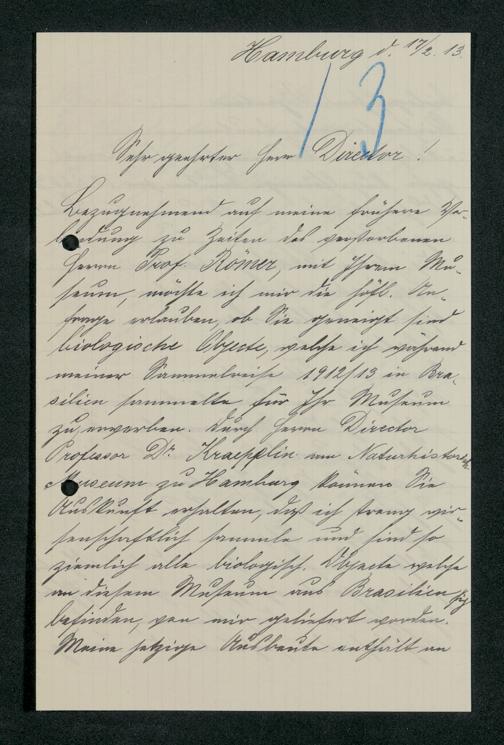 Hamburg d. 17/2. 13.
13
Sehr geehrter Herr Director!
Bezugnehmend auf meine frühere Ver-
bindung zu Zeiten des verstorbenen
Herrn Prof. Römer, mit Ihrem Mu-
seum, möchte ich mir die höfl. An-
frage erlauben, ob Sie geneigt sind
biologische Objecte, welche ich während
meiner Sammelreise 1912/13 in Bra-
silien sammelte für Ihr Museum
zu erwerben. Durch Herrn Director
Professor Dr. Kraepelin am Naturhistor.
Museum zu Hamburg können Sie
Auskunft erhalten, daß ich streng wis-
senschaftlich sammle und sind so
ziemlich alle biologisch. Objecte welche
an diesem Museum aus Brasilien sich
befinden, von mir geliefert worden.
Meine jetzige Ausbeute enthält an